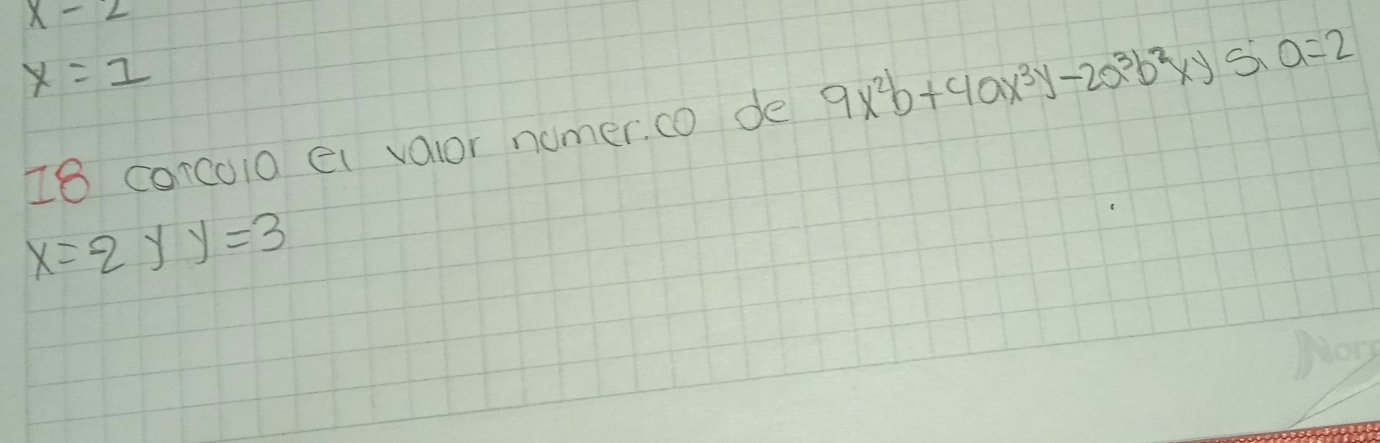 x - 2
x = 1
18 calcula el valor numerico de 9x²b+4ax³y-2a³b²xy si a=2
x=2 y y=3
Norm